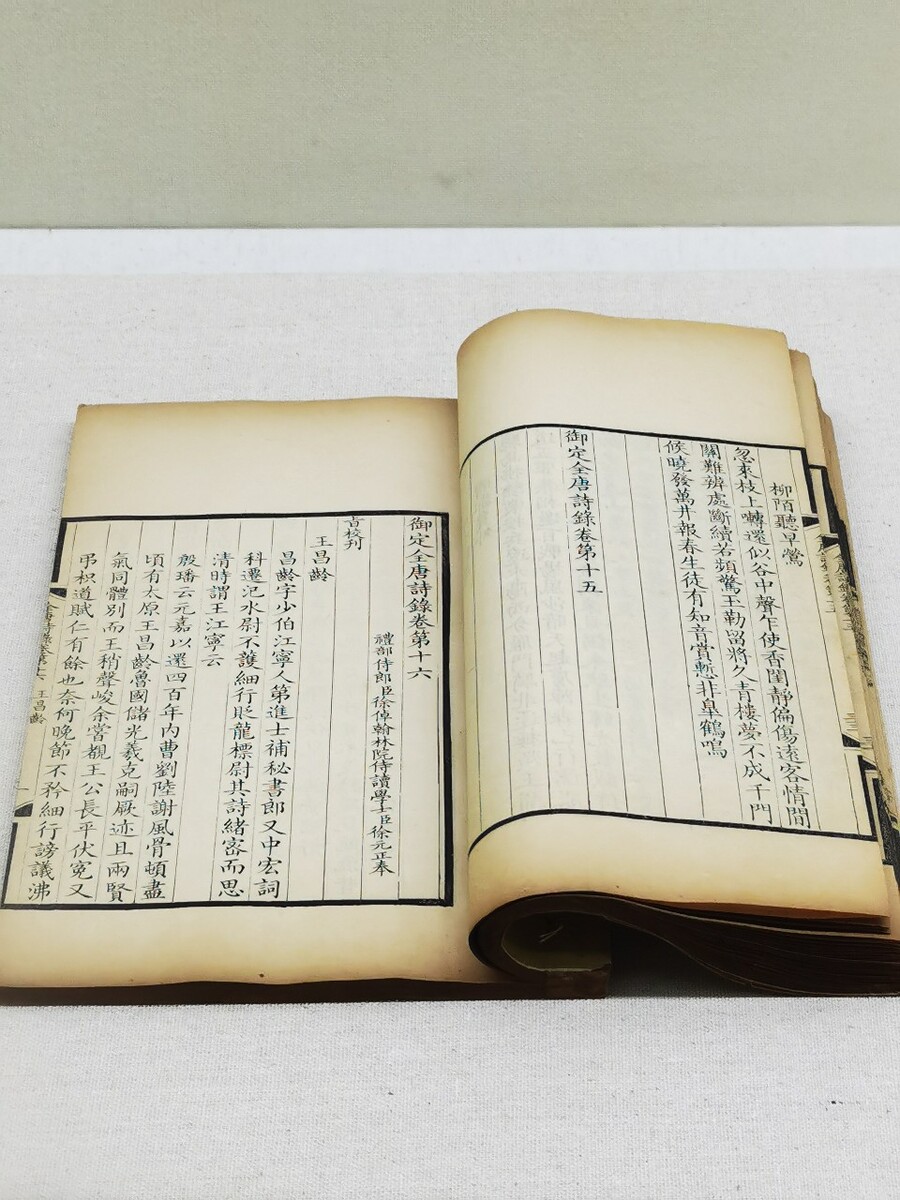 柳陌聽早鶯
忽來枝上囀還似谷中聲乍使香閨靜偏傷遠客情間
關難辨處斷續若頻驚玉勒留將久青樓夢不成千門
候曉發萬井報春生徒有知音賞慙非皐鶴鳴
御定全唐詩錄卷第十五
御定全唐詩錄卷第十六
禮部侍郎臣徐倬翰林院侍讀學士臣徐元正奉
旨校刋
王昌齡
昌齡字少伯江寧人第進士補秘書郎又中宏詞
科遷汜水尉不護細行貶龍標尉其詩緒宻而思
清時謂王江寧云
殷璠云元嘉以還四百年内曹劉陸謝風骨頓盡
頃有太原王昌齡魯國儲光羲克嗣厥迹且兩賢
氣同體別而王稍聲峻余嘗覩王公長平伏寃又
弔枳道賦仁有餘也奈何晚節不矜細行謗議沸
全唐詩錄卷第十六 王昌齡